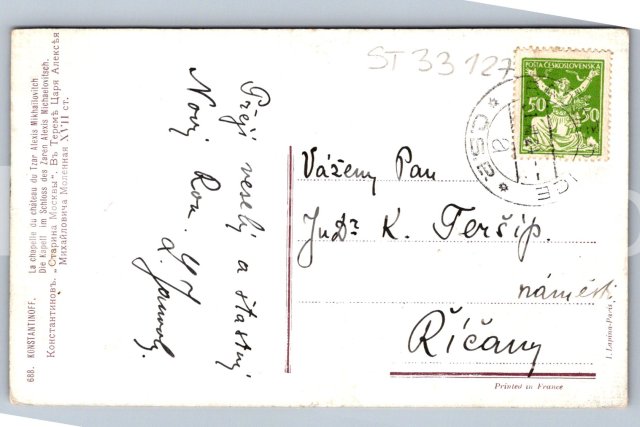 ST 33 127
POŠTA ČESKOSLOVENSKA
50 50
Přeji veselý a šťastný
Nový Rok.
Vážený Pan
JuDr K. Teršíp.
náměstí
Říčany
Printed in France
I. Lapina-Paris.
688. KONSTANTINOFF. La chapelle du château du Tzar Alexis Mikhaïlovitch
Die Kapell im Schloss des Zaren Alexis Michaelovitsch.
Константиновъ. „Старина Москвы“. Въ Теремѣ Царя Алексѣя
Михайловича Моленная XVII ст.